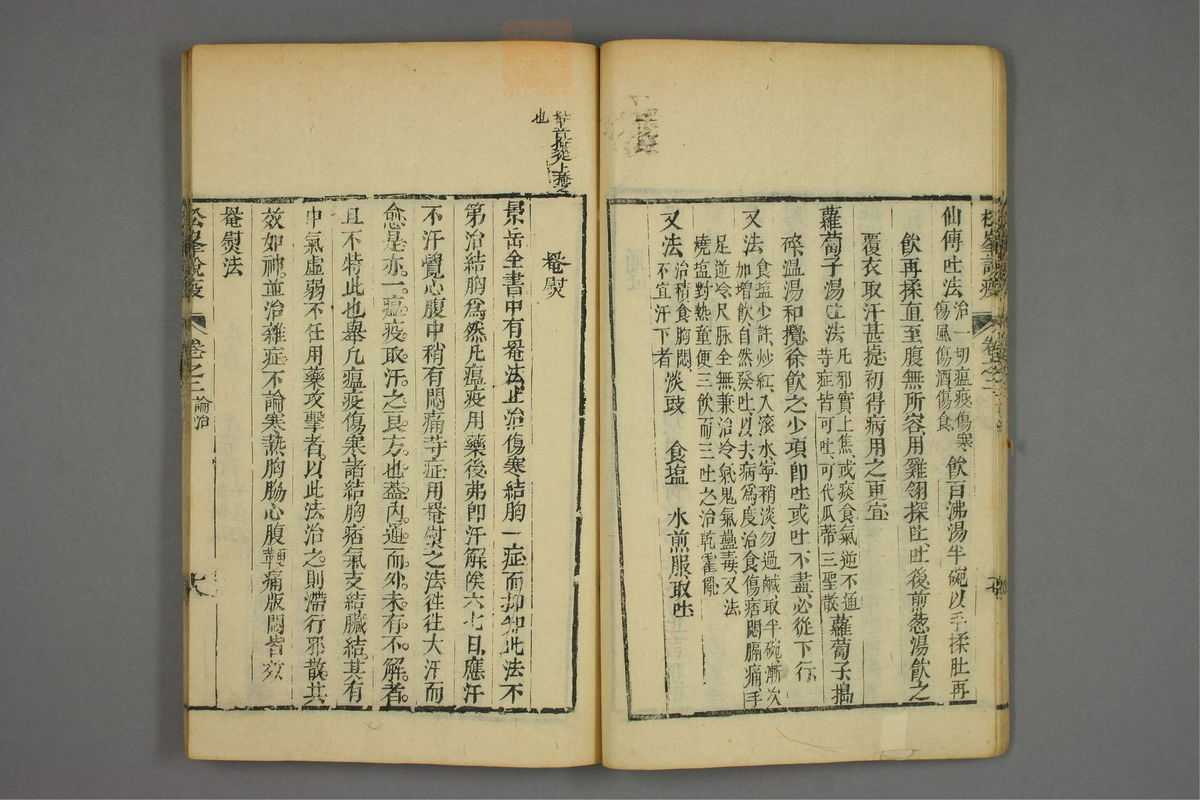 仙傳吐法
治一切瘟疫傷寒
傷風傷酒傷食
飲百沸湯半碗以手揉肚再
飲再揉直至腹無所容用雞翎探吐吐後煎葱湯飲之
覆衣取汗甚捷初得病用之更宜
蘿蔔子湯吐法
凡邪實上焦或痰食氣逆不通
等症皆可吐可代瓜蒂三聖散
蘿蔔子搗
碎溫湯和攪徐飲之少項即吐或吐不盡必從下行
又法
食塩少許炒紅入滚水寧稍淡勿過鹹取半碗漸次
加增飲自然發吐以去病為度治食傷痞悶膈痛手
足逆冷尺脉全無兼治冷氣鬼氣蠱毒又法
燒塩對熱童便三飲而三吐之治乾霍亂
又法
治積食胸悶
不宜汗下者
淡豉 食塩 水煎服取吐
也
罨熨
景岳全書中有罨法止治傷寒結胸一症而抑知此法不
第治結胸為然凡瘟疫用藥後弗即汗解俟六七日應汗
不汗覺心腹中稍有悶痛等症用罨熨之法徃徃大汗而
愈是亦一瘟疫取汗之良方也葢內通而外未有不解者
且不特此也舉凡瘟疫傷寒諸結胸痞氣支結臟結其有
中氣虛弱不任用藥攻擊者以此法治之則滯行邪散其
效如神並治雜症不論寒熱胸腸心腹鞕痛版悶皆效
罨熨法
松峯說疫 卷之三 論治